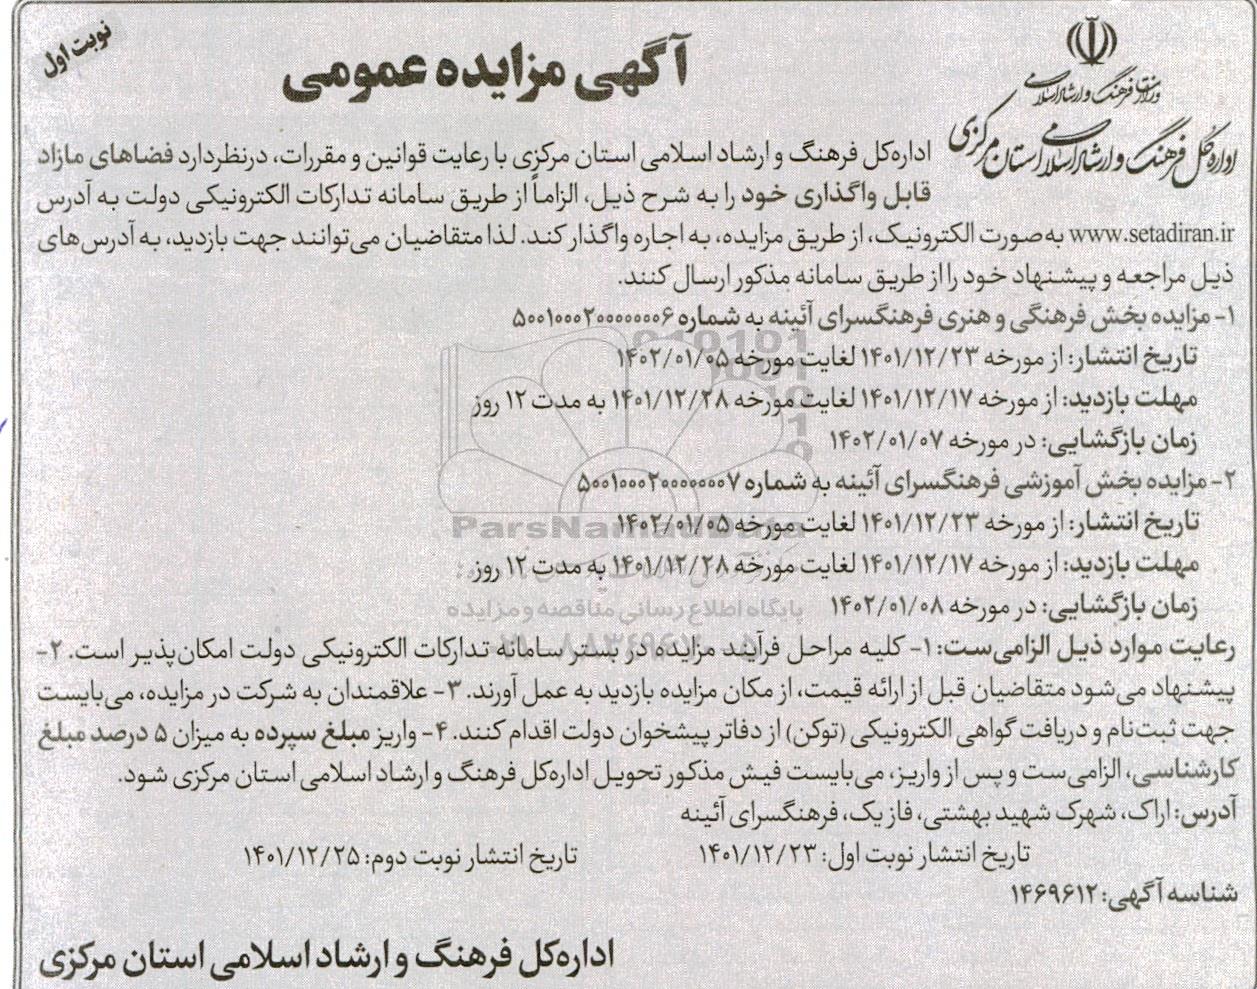 نوبت اول
آگهی مزایده عمومی
وزارت فرهنگ و ارشاد اسلامی
اداره کل فرهنگ و ارشاد اسلامی استان مرکزی
اداره‌کل فرهنگ و ارشاد اسلامی استان مرکزی با رعایت قوانین و مقررات، درنظردارد فضاهای مازاد
قابل واگذاری خود را به شرح ذیل، الزاماً از طریق سامانه تدارکات الکترونیکی دولت به آدرس
www.setadiran.ir به‌صورت الکترونیک، از طریق مزایده، به اجاره واگذار کند. لذا متقاضیان می‌توانند جهت بازدید، به آدرس‌های
ذیل مراجعه و پیشنهاد خود را از طریق سامانه مذکور ارسال کنند.
۱- مزایده بخش فرهنگی و هنری فرهنگسرای آئینه به شماره ۵۰۰۱۰۰۰۲۰۰۰۰۰۰۰۶
تاریخ انتشار: از مورخه ۱۴۰۱/۱۲/۲۳ لغایت مورخه ۱۴۰۲/۰۱/۰۵
مهلت بازدید: از مورخه ۱۴۰۱/۱۲/۱۷ لغایت مورخه ۱۴۰۱/۱۲/۲۸ به مدت ۱۲ روز
زمان بازگشایی: در مورخه ۱۴۰۲/۰۱/۰۷
۲- مزایده بخش آموزشی فرهنگسرای آئینه به شماره ۵۰۰۱۰۰۰۲۰۰۰۰۰۰۰۷
تاریخ انتشار: از مورخه ۱۴۰۱/۱۲/۲۳ لغایت مورخه ۱۴۰۲/۰۱/۰۵
ParsNamadData
مهلت بازدید: از مورخه ۱۴۰۱/۱۲/۱۷ لغایت مورخه ۱۴۰۱/۱۲/۲۸ به مدت ۱۲ روز
زمان بازگشایی: در مورخه ۱۴۰۲/۰۱/۰۸
پایگاه اطلاع رسانی مناقصه و مزایده
رعایت موارد ذیل الزامی‌ست: ۱- کلیه مراحل فرآیند مزایده در بستر سامانه تدارکات الکترونیکی دولت امکان‌پذیر است. ۲-
پیشنهاد می‌شود متقاضیان قبل از ارائه قیمت، از مکان مزایده بازدید به عمل آورند. ۳- علاقمندان به شرکت در مزایده، می‌بایست
جهت ثبت‌نام و دریافت گواهی الکترونیکی (توکن) از دفاتر پیشخوان دولت اقدام کنند. ۴- واریز مبلغ سپرده به میزان ۵ درصد مبلغ
کارشناسی، الزامی‌ست و پس از واریز، می‌بایست فیش مذکور تحویل اداره‌کل فرهنگ و ارشاد اسلامی استان مرکزی شود.
آدرس: اراک، شهرک شهید بهشتی، فاز یک، فرهنگسرای آئینه
تاریخ انتشار نوبت اول: ۱۴۰۱/۱۲/۲۳ تاریخ انتشار نوبت دوم: ۱۴۰۱/۱۲/۲۵
شناسه آگهی: ۱۴۶۹۶۱۲
اداره‌کل فرهنگ و ارشاد اسلامی استان مرکزی